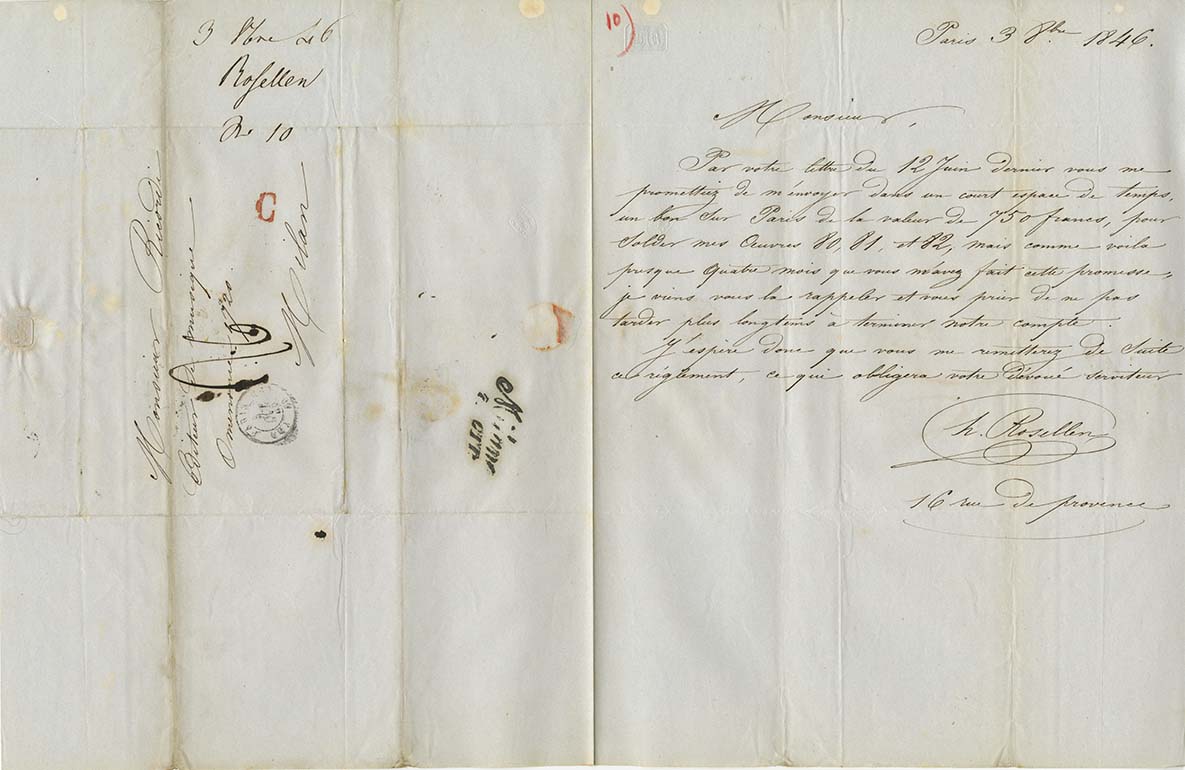 3 8bre 46
Rosellen
No 10
C
Monsieur Ricordi
Editeur de musique
Milan
10)
Paris 3 8bre 1846.
Monsieur,
Par votre lettre du 12 Juin dernier vous me
promettiez de m'envoyer dans un court espace de temps,
un bon sur Paris de la valeur de 750 francs, pour
Solder mes Œuvres 80, 81, et 82, mais comme voila
presque quatre mois que vous m'avez fait cette promesse,
je viens vous la rappeler et vous prier de ne pas
tarder plus longtems à terminer notre compte.
J'espère donc que vous me remetterez de Suite
ce règlement, ce qui obligera votre dévoué serviteur
h. Rosellen
16 rue de provence